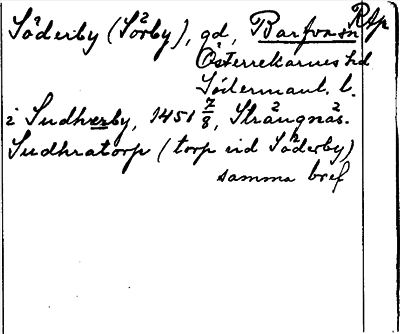 Söderby (Sörby), gd, Barfva sn Rtp
Österrekarnes hd
Södermanl. l.
i Sudherby, 1451 7/8, Strängnäs.
Sudhratorp (torp vid Söderby)
samma bref